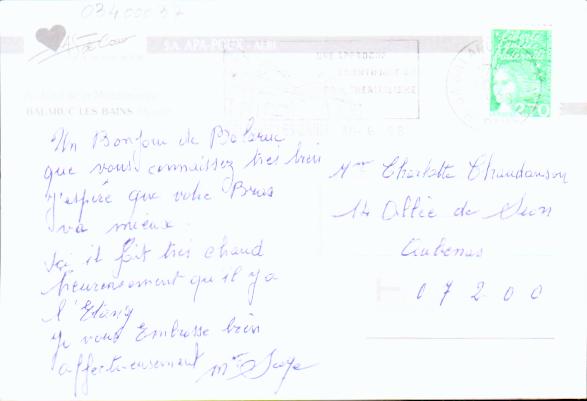 03400037
S.A. APA-POUX - ALBI
BALARUC LES BAINS
UNE APPROCHE
2,70
Un Bonjour de Balaruc
que vous connaissez très bien
J'espère que votre Bras
va mieux.
Ici il fait très chaud
heureusement qu'il y a
l'Etang
Je vous Embrasse bien
affectueusement
Mme Charlotte Chaudanson
14 Allée de Sion
Aubenas
07200